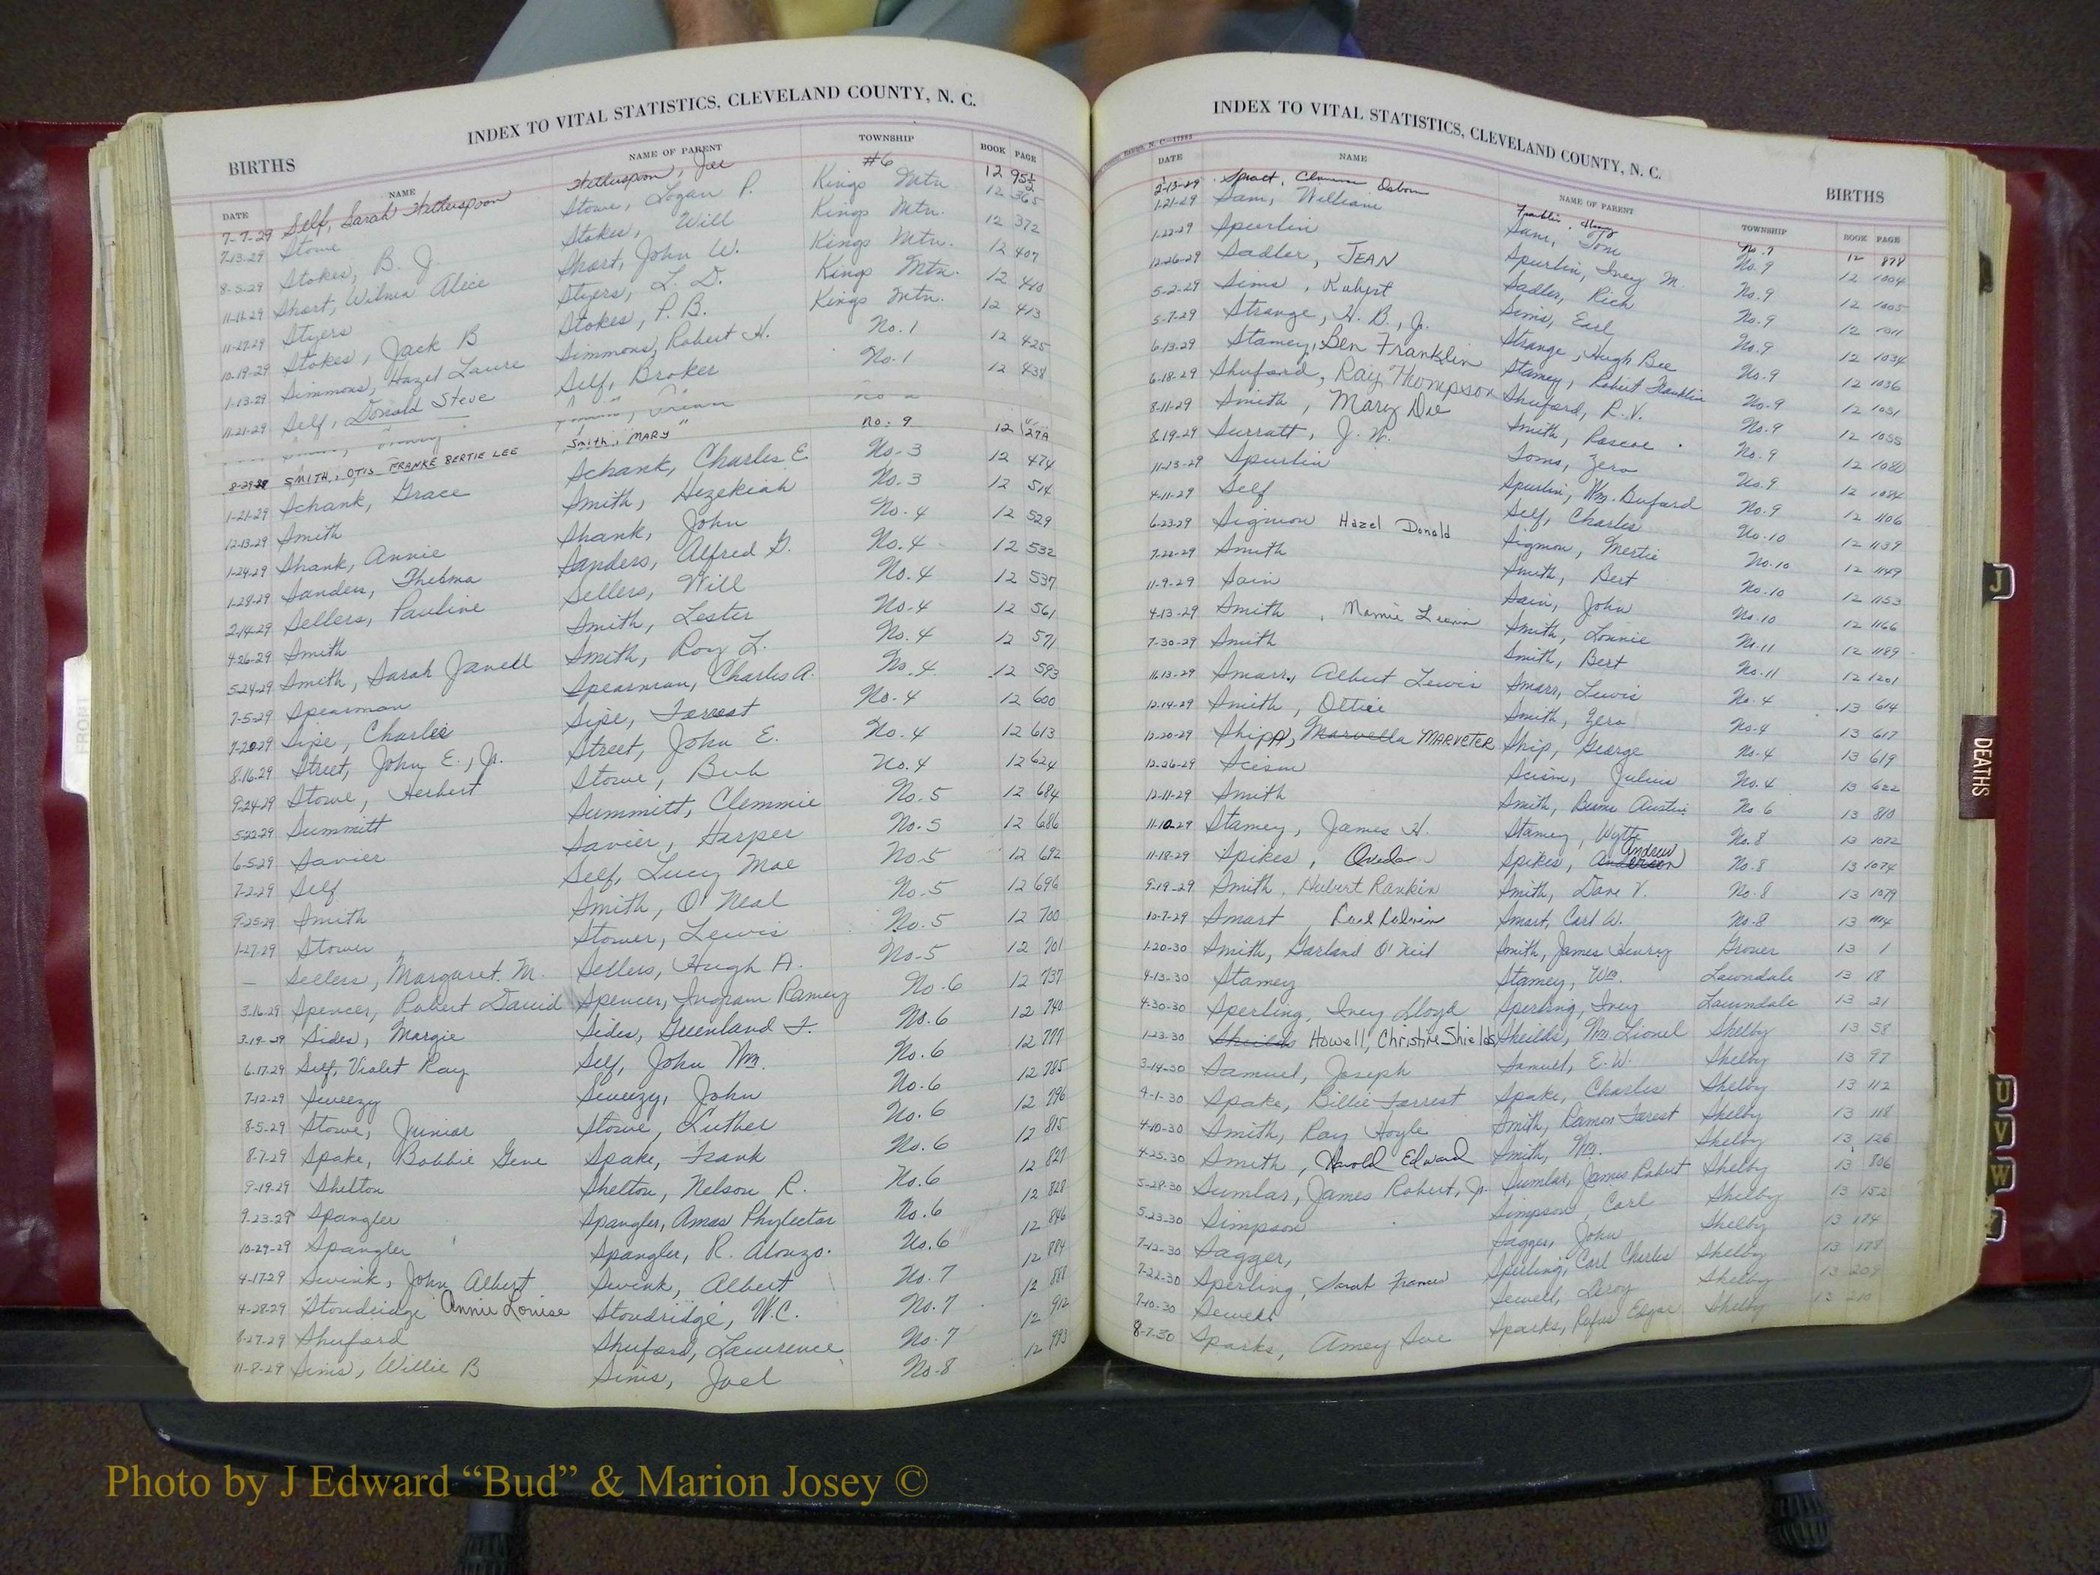 INDEX TO VITAL STATISTICS, CLEVELAND COUNTY, N. C.
BIRTHS
DATE NAME NAME OF PARENT TOWNSHIP BOOK PAGE
7-7-29 Self, Sarah Witherspoon Witherspoon, Joe #6 12 95½
7-13-29 Stowe Stowe, Logan P. Kings Mtn 12 365
8-5-29 Stokes, B. J. Stokes, Will Kings Mtn. 12 372
11-11-29 Short, Wilma Alice Short, John W. Kings Mtn. 12 407
11-27-29 Styers Styers, L. D. Kings Mtn. 12 410
10-19-29 Stokes, Jack B Stokes, P. B. Kings Mtn. 12 413
1-13-29 Simmons, Hazel Laure Simmons, Robert H. No. 1 12 425
11-21-29 Self, Donald Steve Self, Broker No. 1 12 438
8-29-29 SMITH, OTIS FRANKE BERTIE LEE Smith, MARY no. 9 12
1-21-29 Schank, Grace Schank, Charles E. No. 3 12 474
12-13-29 Smith Smith, Hezekiah No. 3 12 514
1-24-29 Shank, Annie Shank, John No. 4 12 529
1-28-29 Sanders, Thelma Sanders, Alfred G. No. 4 12 532
2-14-29 Sellers, Pauline Sellers, Will No. 4 12 537
4-26-29 Smith Smith, Lester No. 4 12 561
5-24-29 Smith, Sarah Janell Smith, Roy L. No. 4 12 571
7-5-29 Spearman Spearman, Charles A. No. 4 12 593
7-20-29 Sipe, Charlie Sipe, Forrest No. 4 12 600
8-16-29 Street, John E., Jr. Street, John E. No. 4 12 613
9-24-29 Stowe, Herbert Stowe, Bub No. 4 12 624
5-22-29 Summitt Summitt, Clemmie No. 5 12 684
6-5-29 Savier Savier, Harper No. 5 12 686
7-2-29 Self Self, Lucy Mae No. 5 12 692
9-25-29 Smith Smith, O'Neal No. 5 12 696
1-27-29 Stower Stower, Lewis No. 5 12 700
— Sellers, Margaret. M. Sellers, Hugh A. No. 5 12 701
3-16-29 Spencer, Robert David Spencer, Ingram Ramey No. 6 12 737
3-19-29 Sides, Margie Sides, Greenland F. No. 6 12 740
6-17-29 Self, Violet Ray Self, John Wm. No. 6 12 777
7-12-29 Sweezy Sweezy, John No. 6 12 785
8-5-29 Stowe, Junior Stowe, Luther No. 6 12 796
8-7-29 Spake, Bobbie Gene Spake, Frank No. 6 12 815
9-19-29 Shelton Shelton, Nelson R. No. 6 12 827
9-23-29 Spangler Spangler, Amos Phylectar No. 6 12 828
10-29-29 Spangler Spangler, R. Alonzo. No. 6 12 846
4-17-29 Swink, John Albert Swink, Albert No. 7 12 884
4-28-29 Stoudridge Annie Louise Stoudridge, W. C. No. 7 12 888
8-27-29 Shuford Shuford, Lawrence No. 7 12 912
11-8-29 Sims, Willie B Sims, Joel No. 8 12 993
INDEX TO VITAL STATISTICS, CLEVELAND COUNTY, N. C.
BIRTHS
DATE NAME NAME OF PARENT TOWNSHIP BOOK PAGE
2-13-29 Osborn Franklin, No. 7 12 878
1-21-29 Sam, William Sam, Tom No. 9 12 1004
1-22-29 Spurlin Spurlin, Ivey M. No. 9 12 1005
12-26-29 Sadler, JEAN Sadler, Rich No. 9 12 1011
5-2-29 Sims, Robert Sims, Earl No. 9 12 1034
5-7-29 Strange, H. B., Jr. Strange, Hugh Bee No. 9 12 1036
6-13-29 Stamey, Ben Franklin Stamey, Robert Franklin No. 9 12 1051
6-18-29 Shuford, Ray Thompson Shuford, R. V. No. 9 12 1055
8-11-29 Smith, Mary Due Smith, Roscoe No. 9 12 1080
8-19-29 Surratt, J. W. Toms, Zero No. 9 12 1084
11-13-29 Spurlin Spurlin, Wm. Buford No. 9 12 1106
4-11-29 Self Self, Charles No. 10 12 1139
6-23-29 Sigmon Hazel Donald Sigmon, Mertie No. 10 12 1149
7-22-29 Smith Smith, Bert No. 10 12 1153
11-9-29 Sain Sain, John No. 10 12 1166
4-13-29 Smith, Mamie Smith, Lonnie No. 11 12 1189
7-30-29 Smith Smith, Bert No. 11 12 1201
11-13-29 Smarr, Albert Lewis Smarr, Lewis No. 4 13 614
12-14-29 Smith, Ottice Smith, Zero No. 4 13 617
12-20-29 Shipp, Marvella MARVETER Ship, George No. 4 13 619
12-26-29 Scism Scism, Julius No. 4 13 622
12-11-29 Smith Smith, Beame Austin No 6 13 810
11-10-29 Stamey, James H. Stamey, Wytt No. 8 13 1072
11-18-29 Spikes, Oveda Spikes, Anderson Andrew No. 8 13 1074
9-19-29 Smith, Hubert Rankin Smith, Dane V. No. 8 13 1079
10-7-29 Smart Smart, Carl W. No. 8 13 1114
1-20-30 Smith, Garland O'Neil Smith, James Henry Grover 13 1
4-13-30 Stamey Stamey, Wm. Lawndale 13 18
4-30-30 Sperling, Ivey Lloyd Sperling, Ivey Lawndale 13 21
1-23-30 Sheilds Howell, Christine Shields Sheilds, Wm. Lionel Shelby 13 58
3-14-30 Samuel, Joseph Samuel, E. W. Shelby 13 97
4-1-30 Spake, Billie Forrest Spake, Charles Shelby 13 112
4-10-30 Smith, Ray Hoyle Smith, Ramon Forest Shelby 13 118
4-25-30 Smith, Harold Edward Smith, Wm. Shelby 13 126
5-29-30 Sumlar, James Robert, Jr. Sumlar, James Robert Shelby 13 806
5-23-30 Simpson Simpson, Carl Shelby 13 152
7-12-30 Sagger, Sagger, John Shelby 13 174
7-22-30 Sperling, Sarah Frances Sperling, Carl Charles Shelby 13 178
7-10-30 Sewell Sewell, Leroy Shelby 13 209
8-7-30 Sparks, Amey Sue Sparks, Rufus Edgar Shelby 13 210
FRONT
J
DEATHS
U
V
W
Photo by J Edward “Bud” & Marion Josey ©